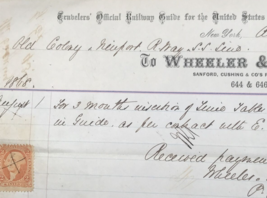 Travelers' Official Railway Guide for the United States
New York
Old Colony & Newport R.Way
To WHEELER &
SANFORD, CUSHING & CO'S
644 & 646
1868
August 1 For 3 month insertion of Time Table
in Guide, as per contract with E.
Received payment
Wheeler